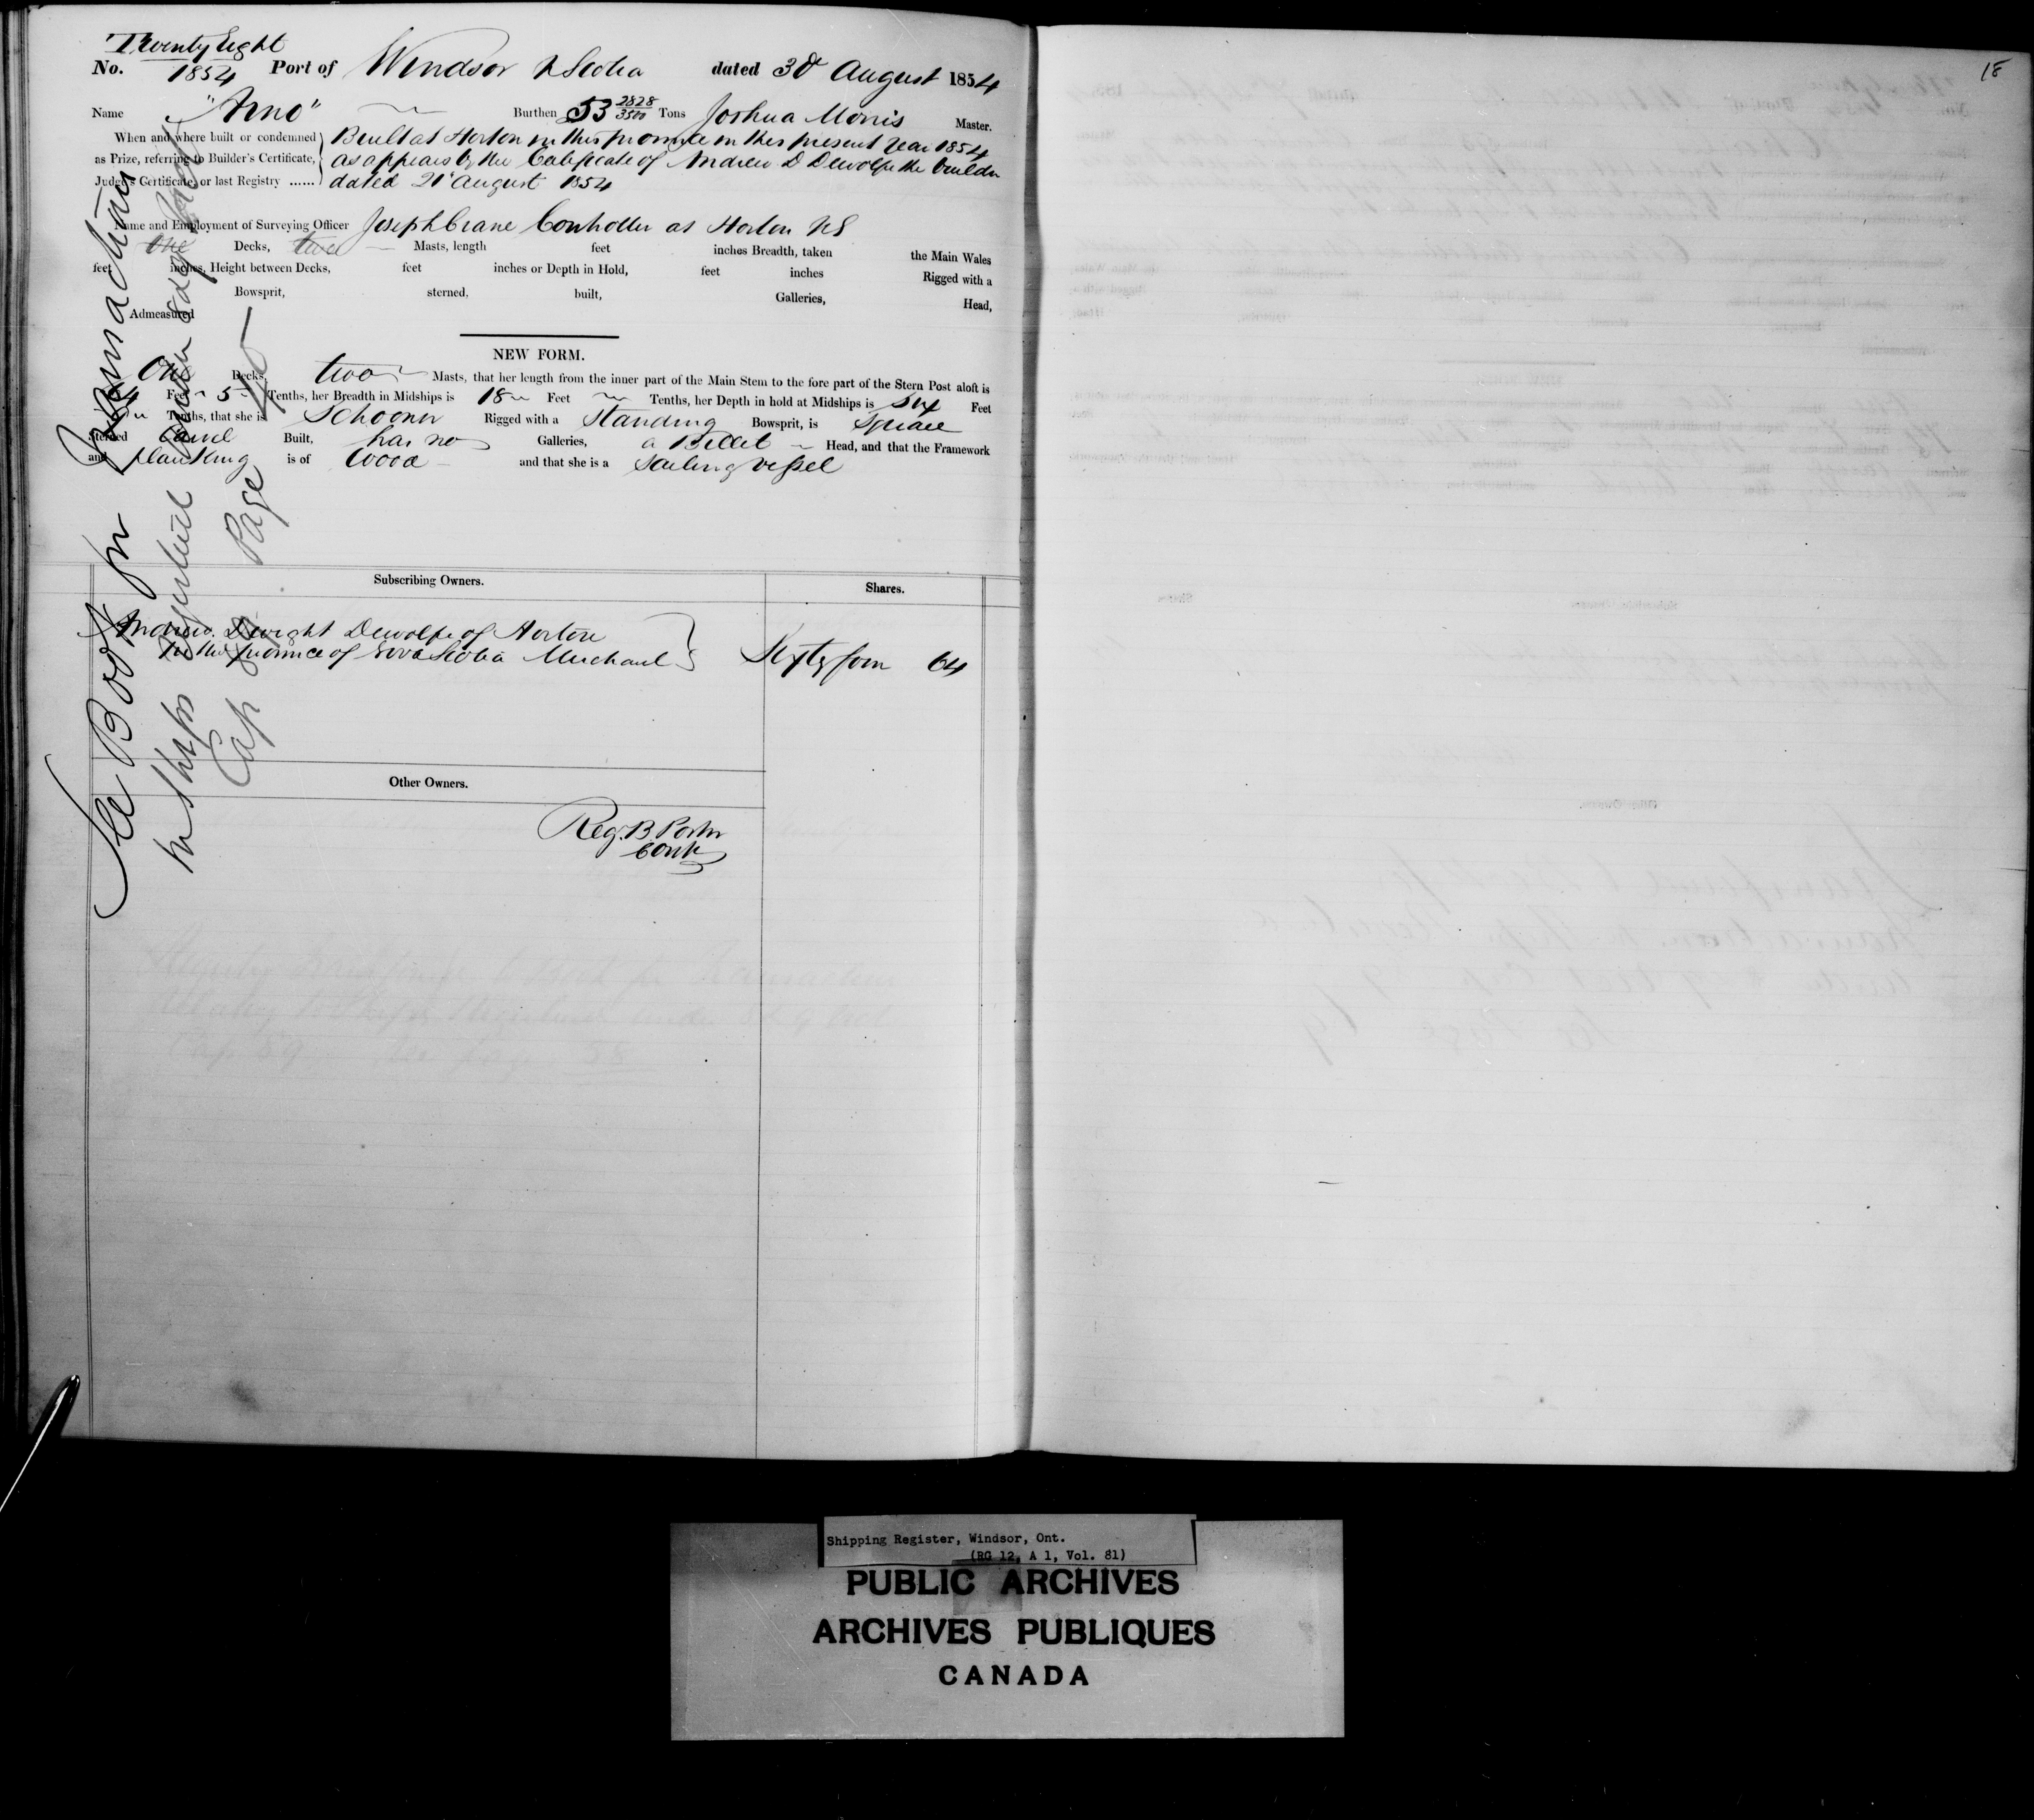 Twenty Eight
No. 1854 Port of Windsor N Scotia dated 30 August 1854
Name "Arno" Burthen 53 2828/3500 Tons Joshua Morris Master.
When and where built or condemned as Prize, referring to Builder's Certificate, Judge's Certificate, or last Registry ......
Built at Horton in this province in this present year 1854
as appears by the Certificate of Andrew D Dewolfe the builder
dated 21st August 1854
Name and Employment of Surveying Officer Joseph Crane Controller at Horton NS
One Decks, two Masts, length feet inches Breadth, taken the Main Wales
feet inches, Height between Decks, feet inches or Depth in Hold, feet inches Rigged with a
Bowsprit, sterned, built, Galleries, Head,
Admeasured
NEW FORM.
One Decks, two Masts, that her length from the inner part of the Main Stem to the fore part of the Stern Post aloft is
64 Feet 5 Tenths, her Breadth in Midships is 18 Feet Tenths, her Depth in hold at Midships is Six Feet
Tenths, that she is Schooner Rigged with a Standing Bowsprit, is Square
Sterned Carvel Built, has no Galleries, a Billet Head, and that the Framework
and planking is of Wood and that she is a Sailing vessel
See Book for Transactions
in Ships Registered under
Cap Page 45
Subscribing Owners. Shares.
Andrew Dwight Dewolfe of Horton
in the province of Nova Scotia Merchant Sixty four 64
Other Owners.
Reg. B Porter
Contr
18
Shipping Register, Windsor, Ont.
(RG 12, A 1, Vol. 81)
PUBLIC ARCHIVES
ARCHIVES PUBLIQUES
CANADA